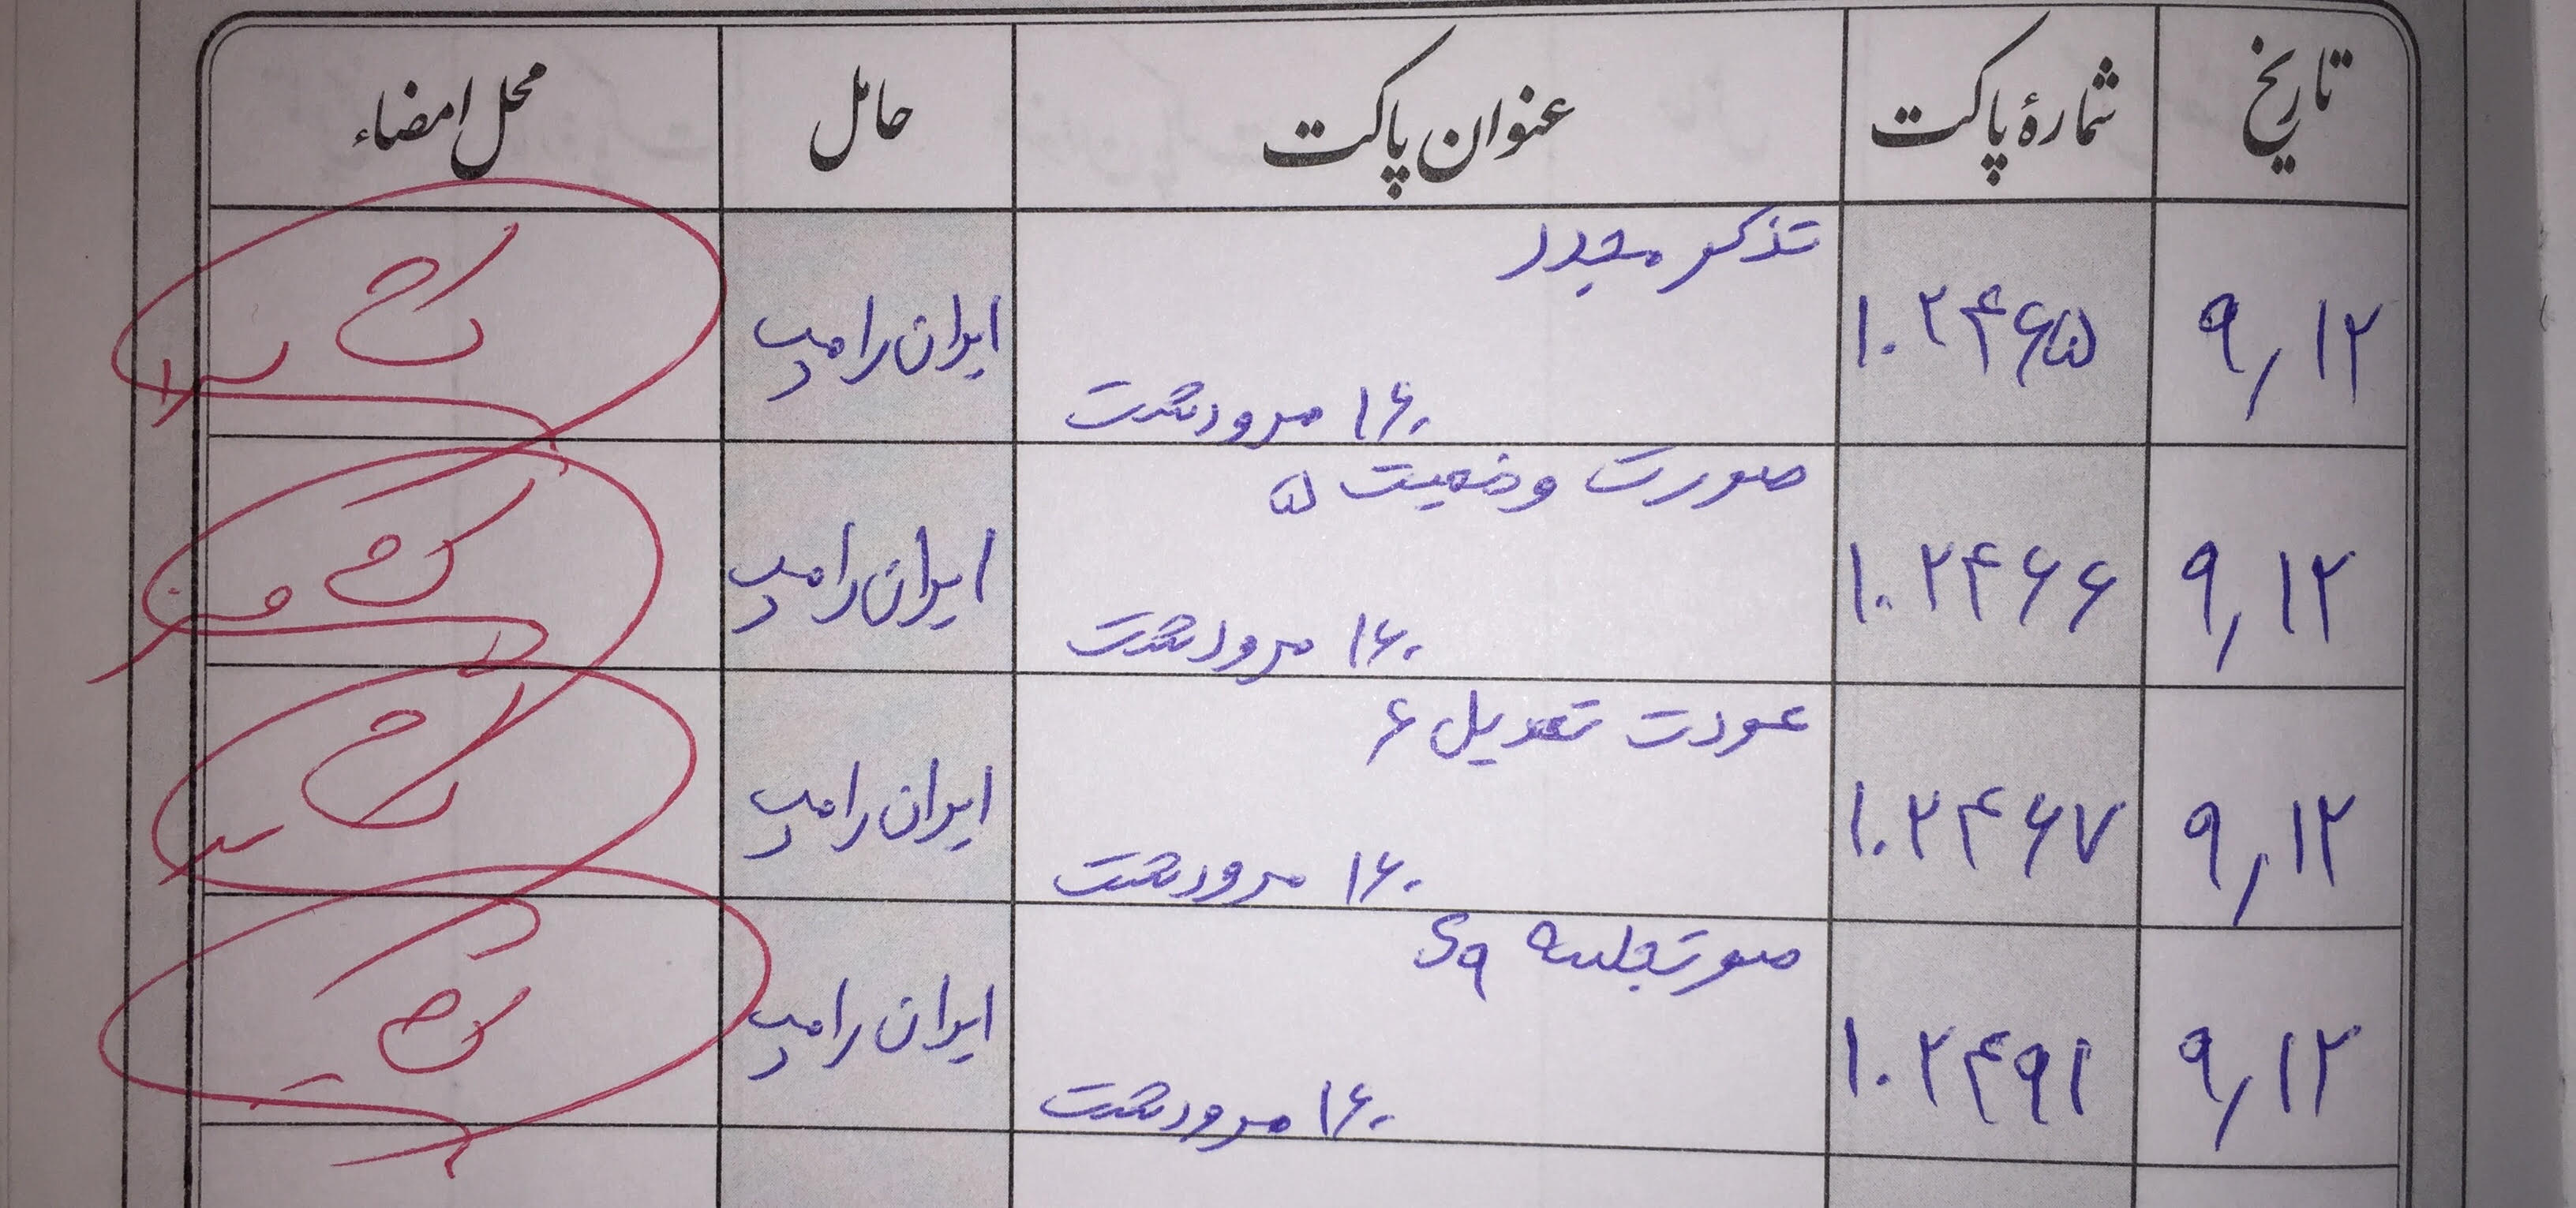 تاریخ شمارهٔ پاکت عنوان پاکت حامل محل امضاء
تذکر مجدد
۹٫۱۲ ۱۰۲۴۶۵ ایران رامپ
۱۶۰ مرودشت
صورت وضعیت ۵
۹٫۱۲ ۱۰۲۴۶۶ ایران رامپ
۱۶۰ مرودشت
عودت تعدیل ۶
۹٫۱۲ ۱۰۲۴۶۷ ایران رامپ
۱۶۰ مرودشت
صورتجلسه
۹٫۱۲ ۱۰۲۴۹۱ ایران رامپ
۱۶۰ مرودشت